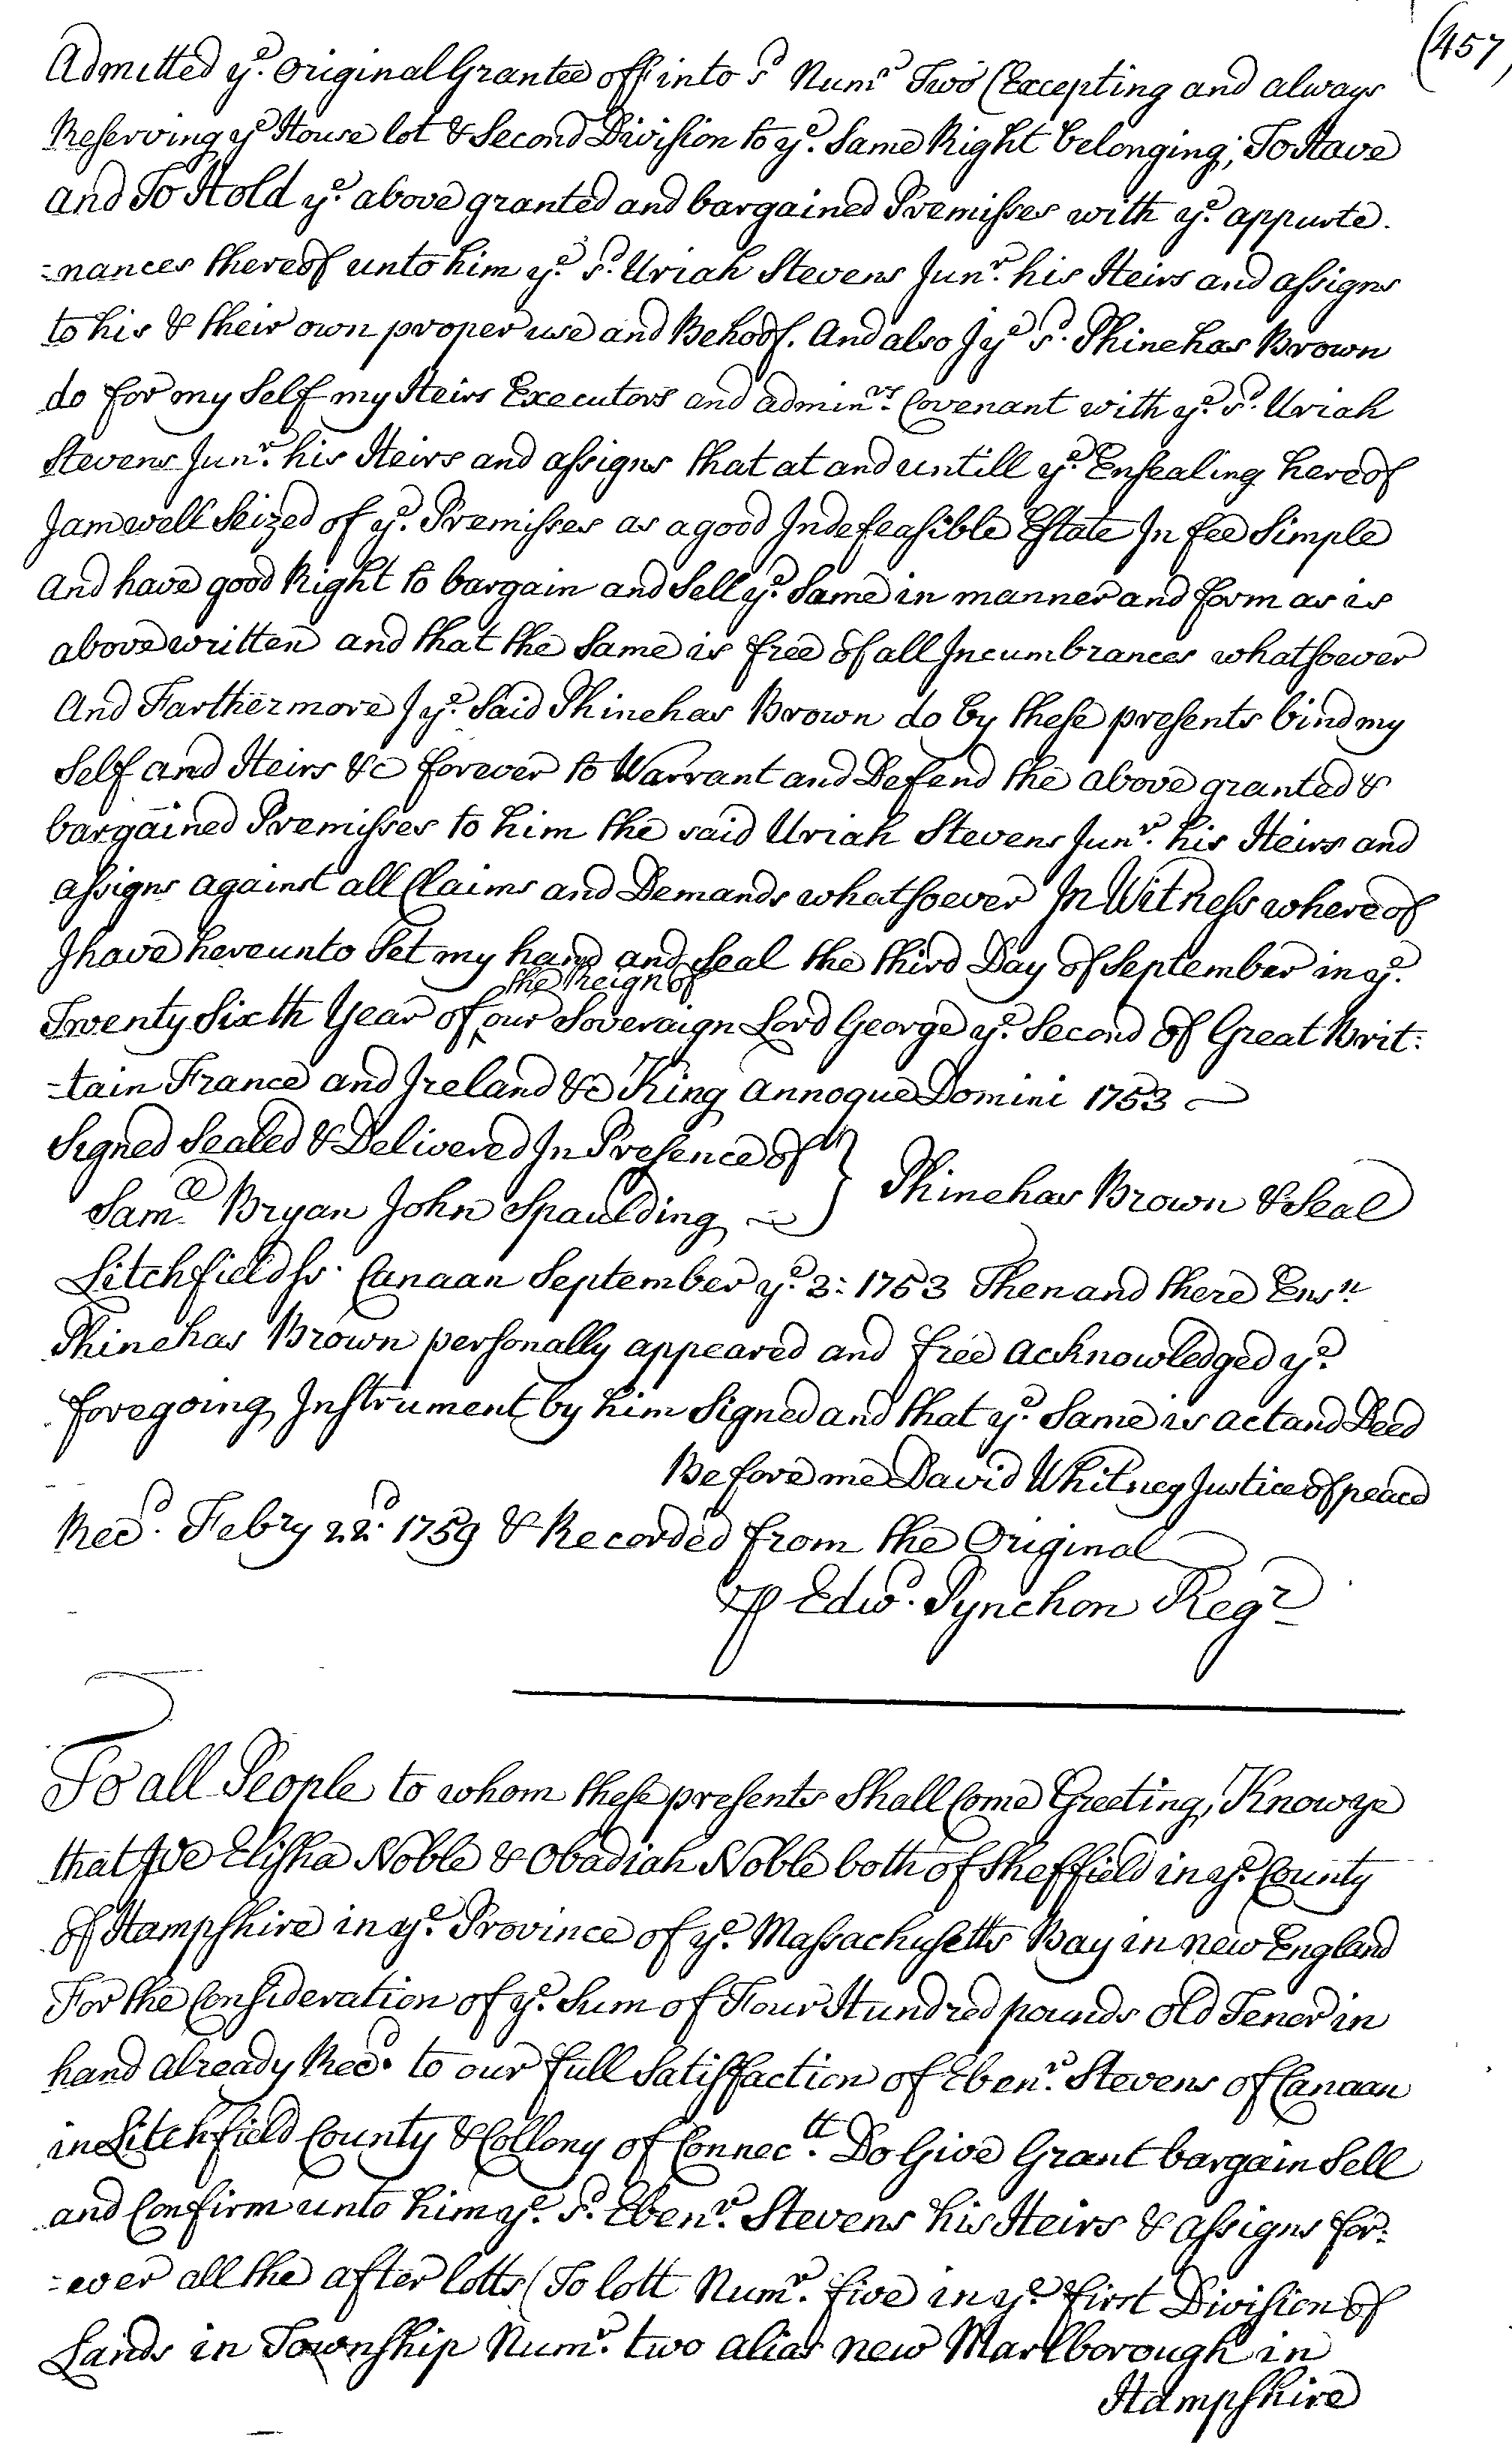 (457)
Admitted ye. Original Grantee off into sd Numr Two (Excepting and always
Reserving ye House lot & Second Division to ye. Same Right belonging; To Have
and To Hold ye. above granted and bargained Premisses with ye. appurte.
-nances thereof unto him ye. sd. Uriah Stevens Junr. his Heirs and assigns
to his & their own proper use and Behoof. And also I ye sd. Phinehas Brown
do for my Self my Heirs Executors and adminrs. Covenant with ye. sd. Uriah
Stevens Junr. his Heirs and assigns that at and untill ye. Ensealing hereof
I am well Seized of ye. Premisses as a good Indefeasible Estate In fee Simple
and have good Right to bargain and Sell ye. Same in manner and form as is
above written and that the Same is free of all Incumbrances whatsoever
And Farthermore I ye. Said Phinehas Brown do by these presents bind my
Self and Heirs &c forever to Warrant and Defend the above granted &
bargained Premisses to him the said Uriah Stevens Junr. his Heirs and
assigns against all Claims and Demands whatsoever In Witness whereof
I have hereunto Set my hand and Seal the third Day of September in ye.
the Reign of
Twenty Sixth Year of ‸ our Soveraign Lord George ye. Second of Great Brit:
-tain France and Ireland &c King Annoque Domini 1753
Signed Sealed & Delivered In Presence of }
Saml. Bryan John Spaulding } Phinehas Brown & Seal
Litchfield ss. Canaan September ye. 3: 1753 Then and there Ensn.
Phinehas Brown personally appeared and free acknowledged ye.
foregoing Instrument by him Signed and that ye. Same is act and Deed
Before me David Whitney Justice of peace
Recd. Febry 22d. 1759 & Recorded from the Original
p Edwd. Pynchon Regr
To all People to whom these presents Shall Come Greeting, Know ye
that We Elisha Noble & Obadiah Noble both of Sheffield in ye. County
of Hampshire in ye. Province of ye. Massachusetts Bay in new England
For the Consideration of ye. Sum of Four Hundred pounds Old Tenor in
hand already Recd. to our full Satisfaction of Ebenr. Stevens of Canaan
in Litchfield County & Collony of Connectt. Do Give Grant bargain Sell
and Confirm unto him ye. sd. Ebenr. Stevens his Heirs & assigns for-
-ever all the after lotts (To lott Numr. five in ye first Division of
Lands in Township Numr. two alias new Marlborough in
Hampshire